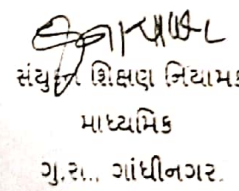 સંયુક્ત શિક્ષણ નિયામક
માધ્યમિક
ગુ.રા., ગાંધીનગર.